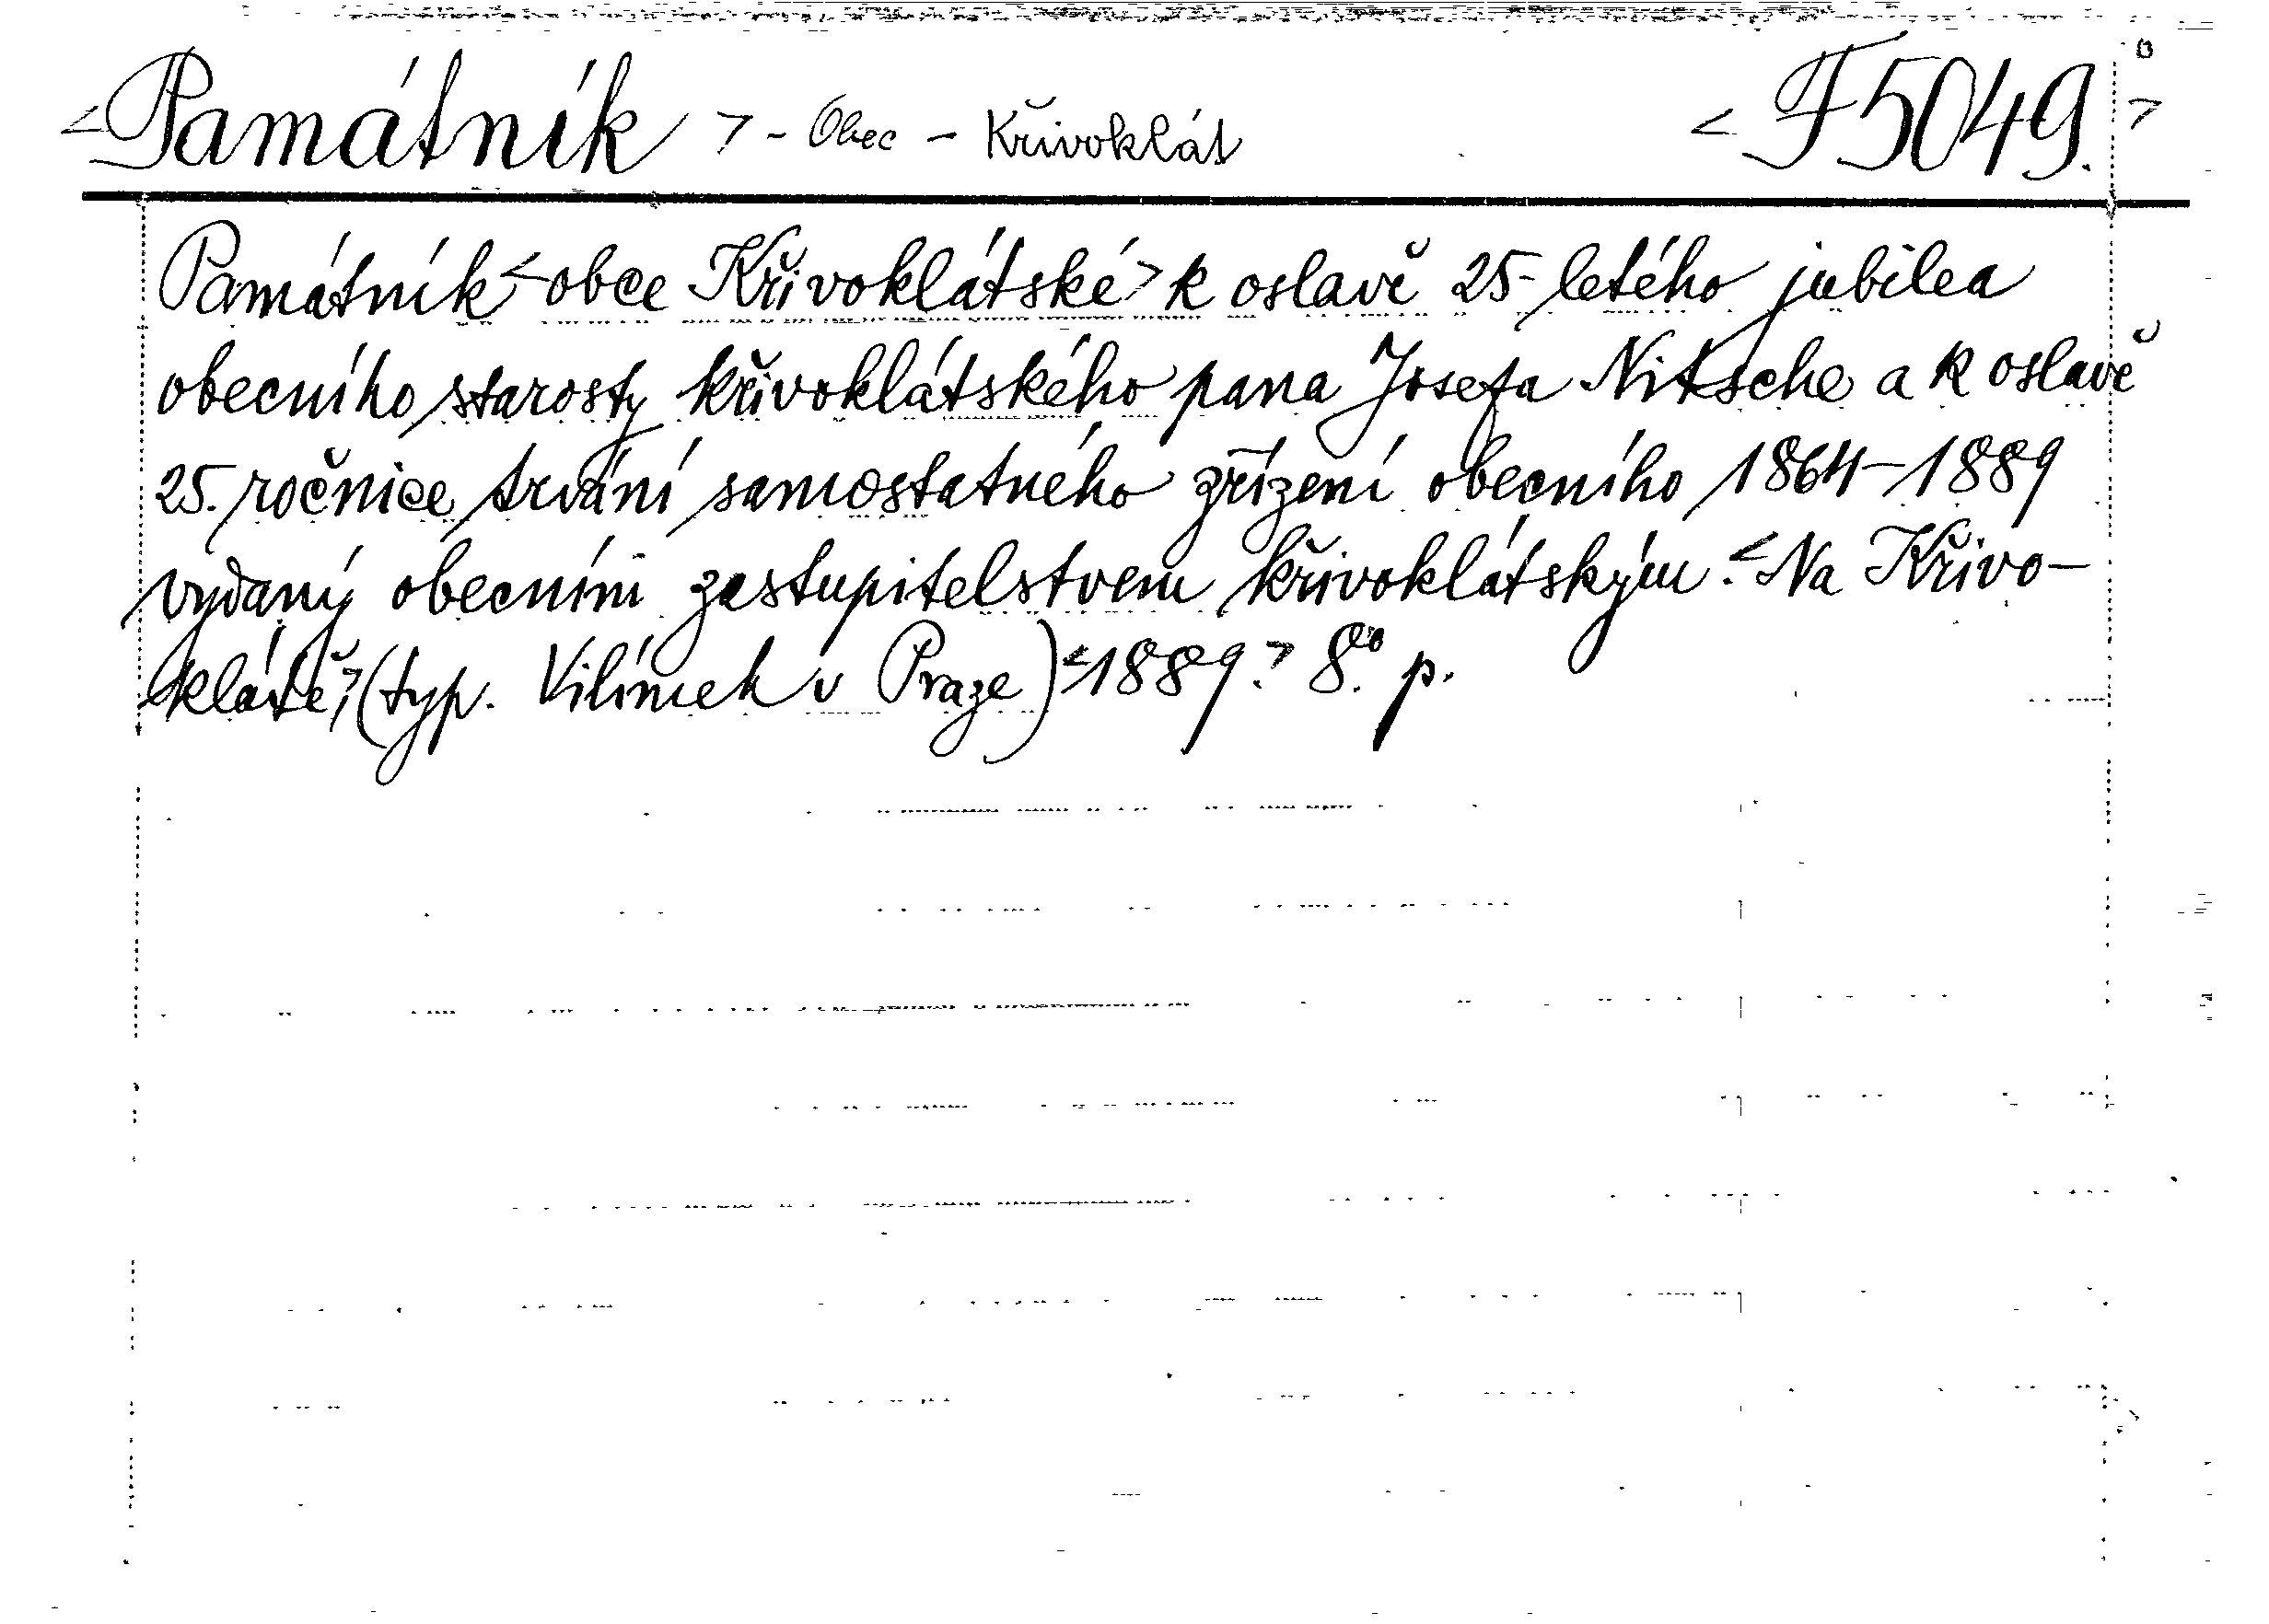 <Památník> - Obec - Křivoklát <F5049.>
Památník <obce Křivoklátské> k oslavě 25-letého jubilea
obecního starosty křivoklátského pana Josefa Nitsche a k oslavě
25. ročnice trvání samostatného zřízení obecního 1864-1889
vydaný obecním zastupitelstvem křivoklátským. <Na Křivo-
klátě,> (typ. Vilímek v Praze) <1889.> 8° p.